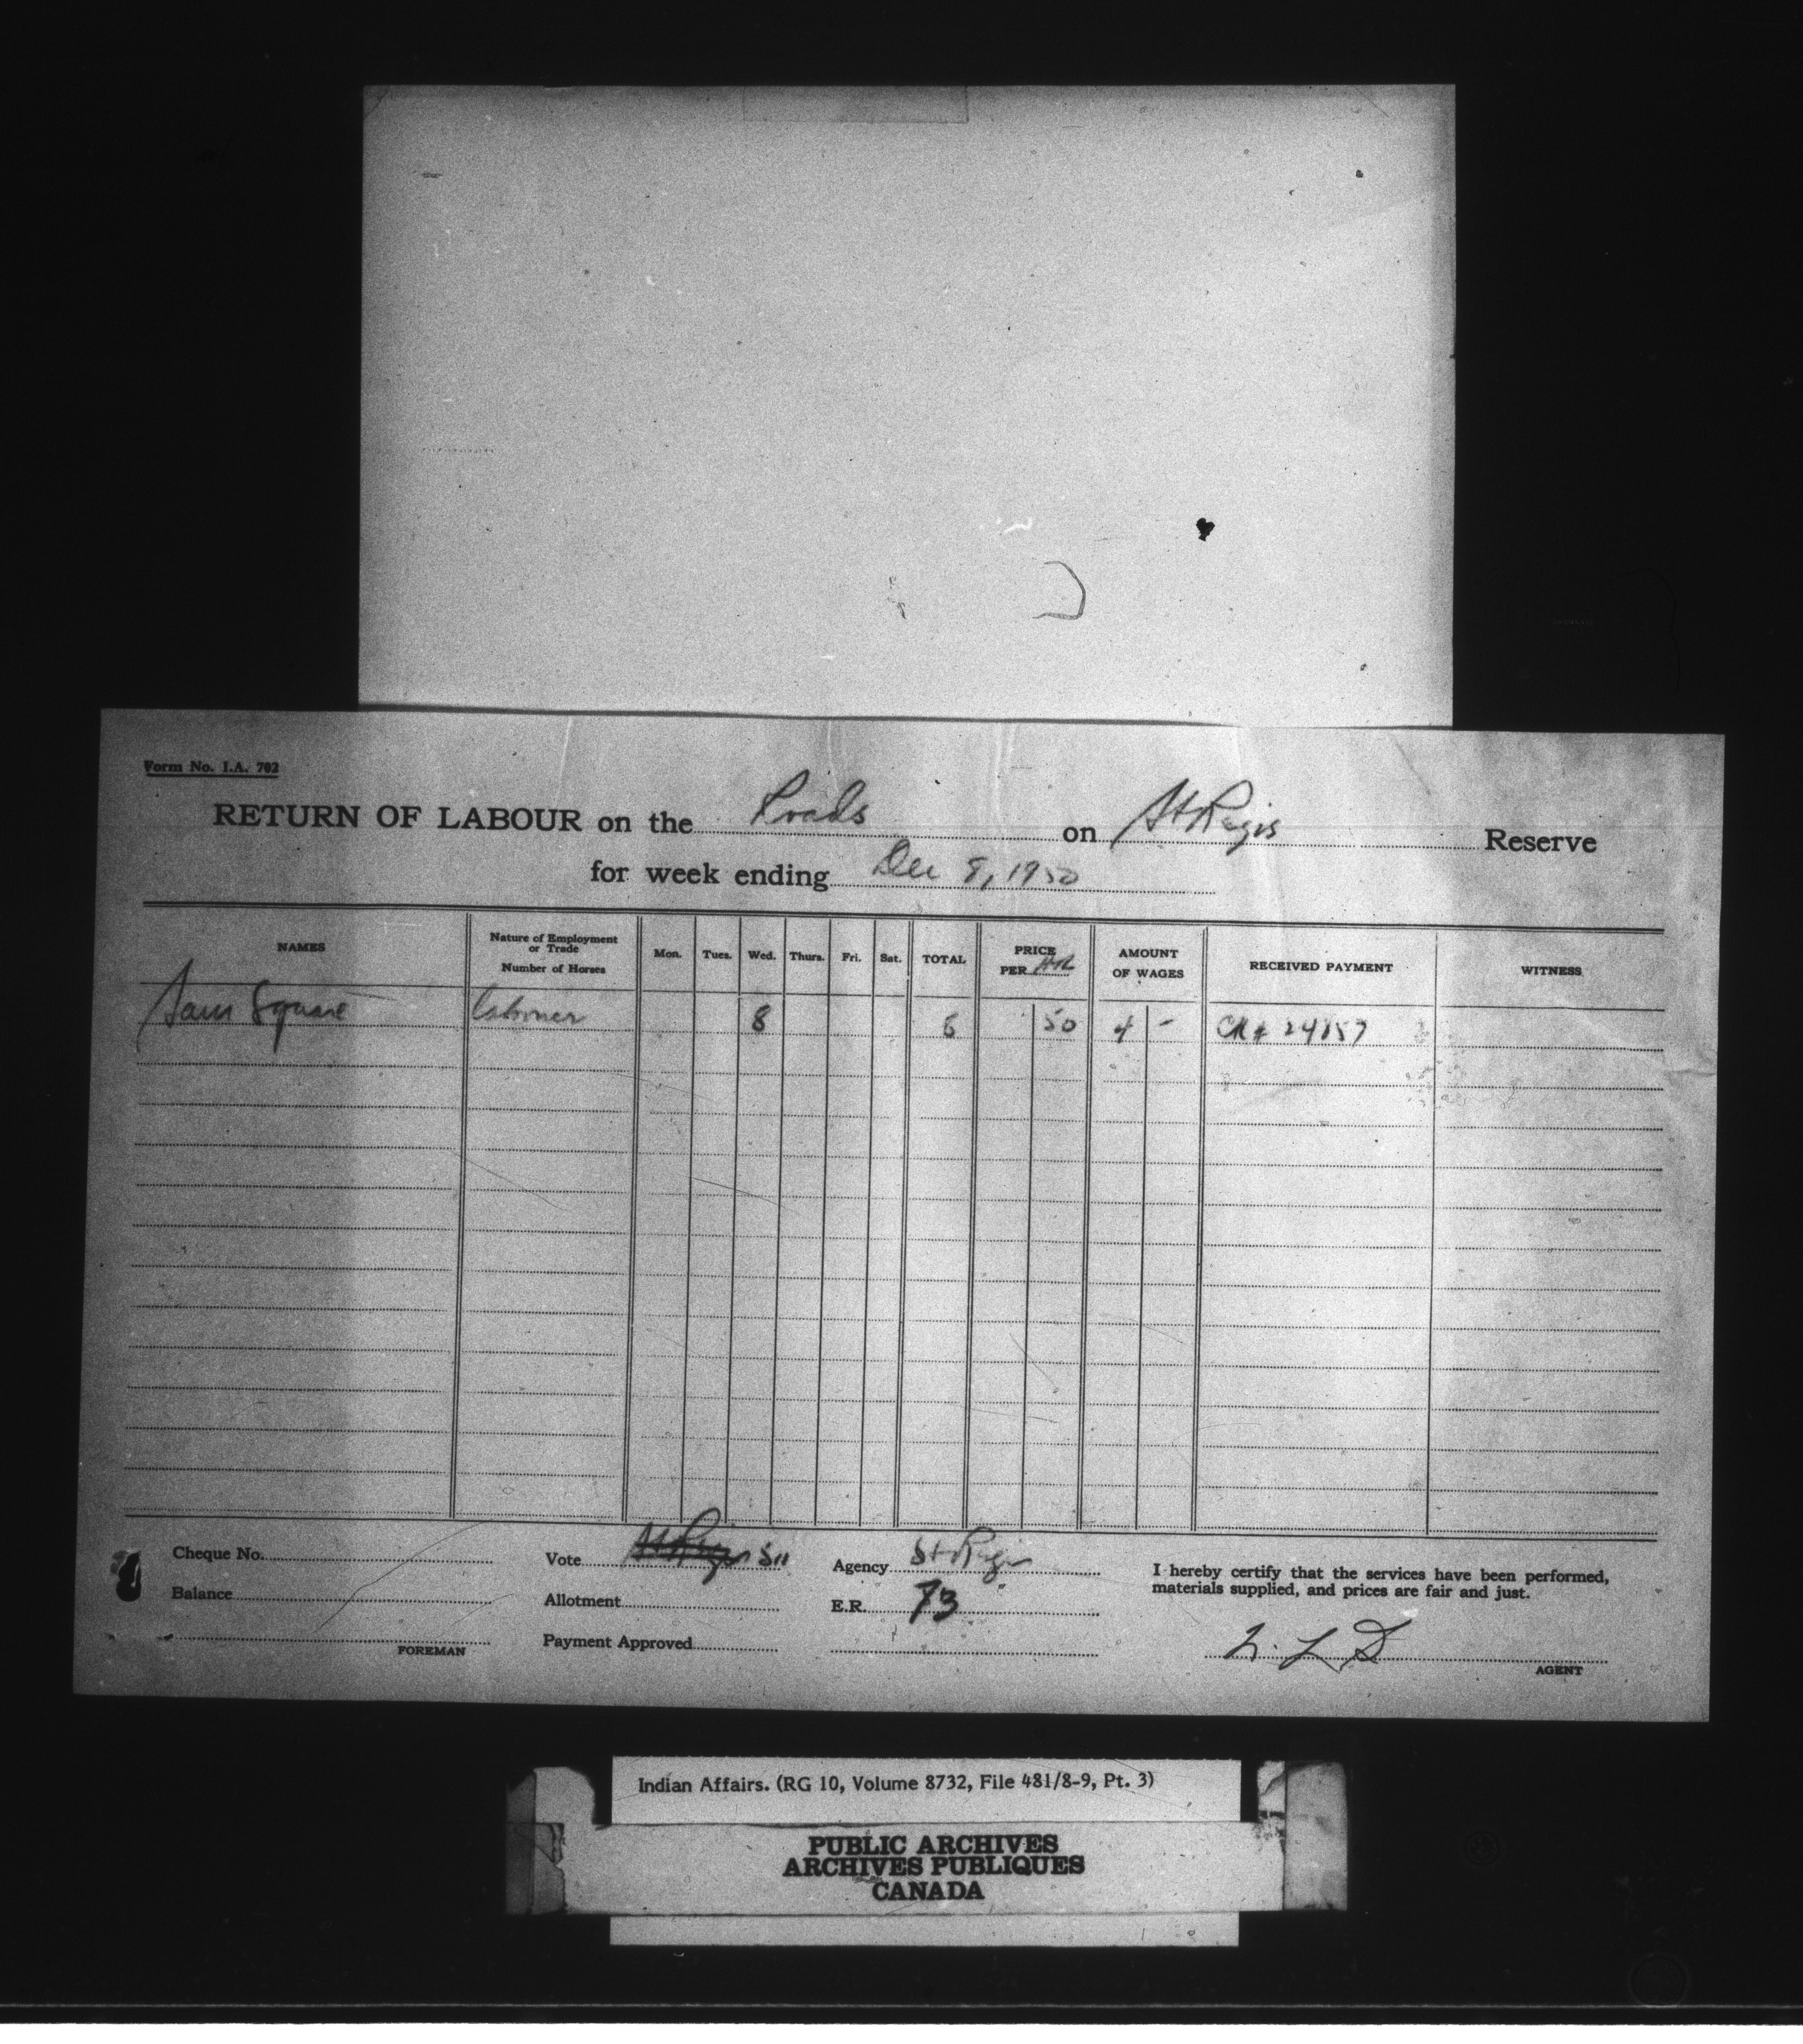 Form No. I.A. 702
RETURN OF LABOUR on the Roads on St Regis Reserve
for week ending Dec 8, 1950
NAMES Nature of Employment or Trade Number of Horses Mon. Tues. Wed. Thurs. Fri. Sat. TOTAL PRICE PER HR AMOUNT OF WAGES RECEIVED PAYMENT WITNESS
Sam Square labourer 8 8 50 4 - CK# 24157
Cheque No. Vote St Regis 511 Agency St Regis
Balance Allotment E.R. 73
FOREMAN Payment Approved
I hereby certify that the services have been performed,
materials supplied, and prices are fair and just.
AGENT
Indian Affairs. (RG 10, Volume 8732, File 481/8-9, Pt. 3)
PUBLIC ARCHIVES
ARCHIVES PUBLIQUES
CANADA